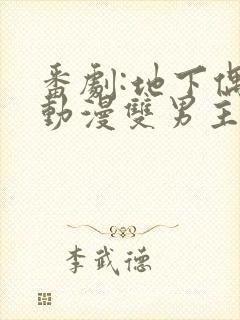 番劇:地下偶
動漫雙男主
李武德